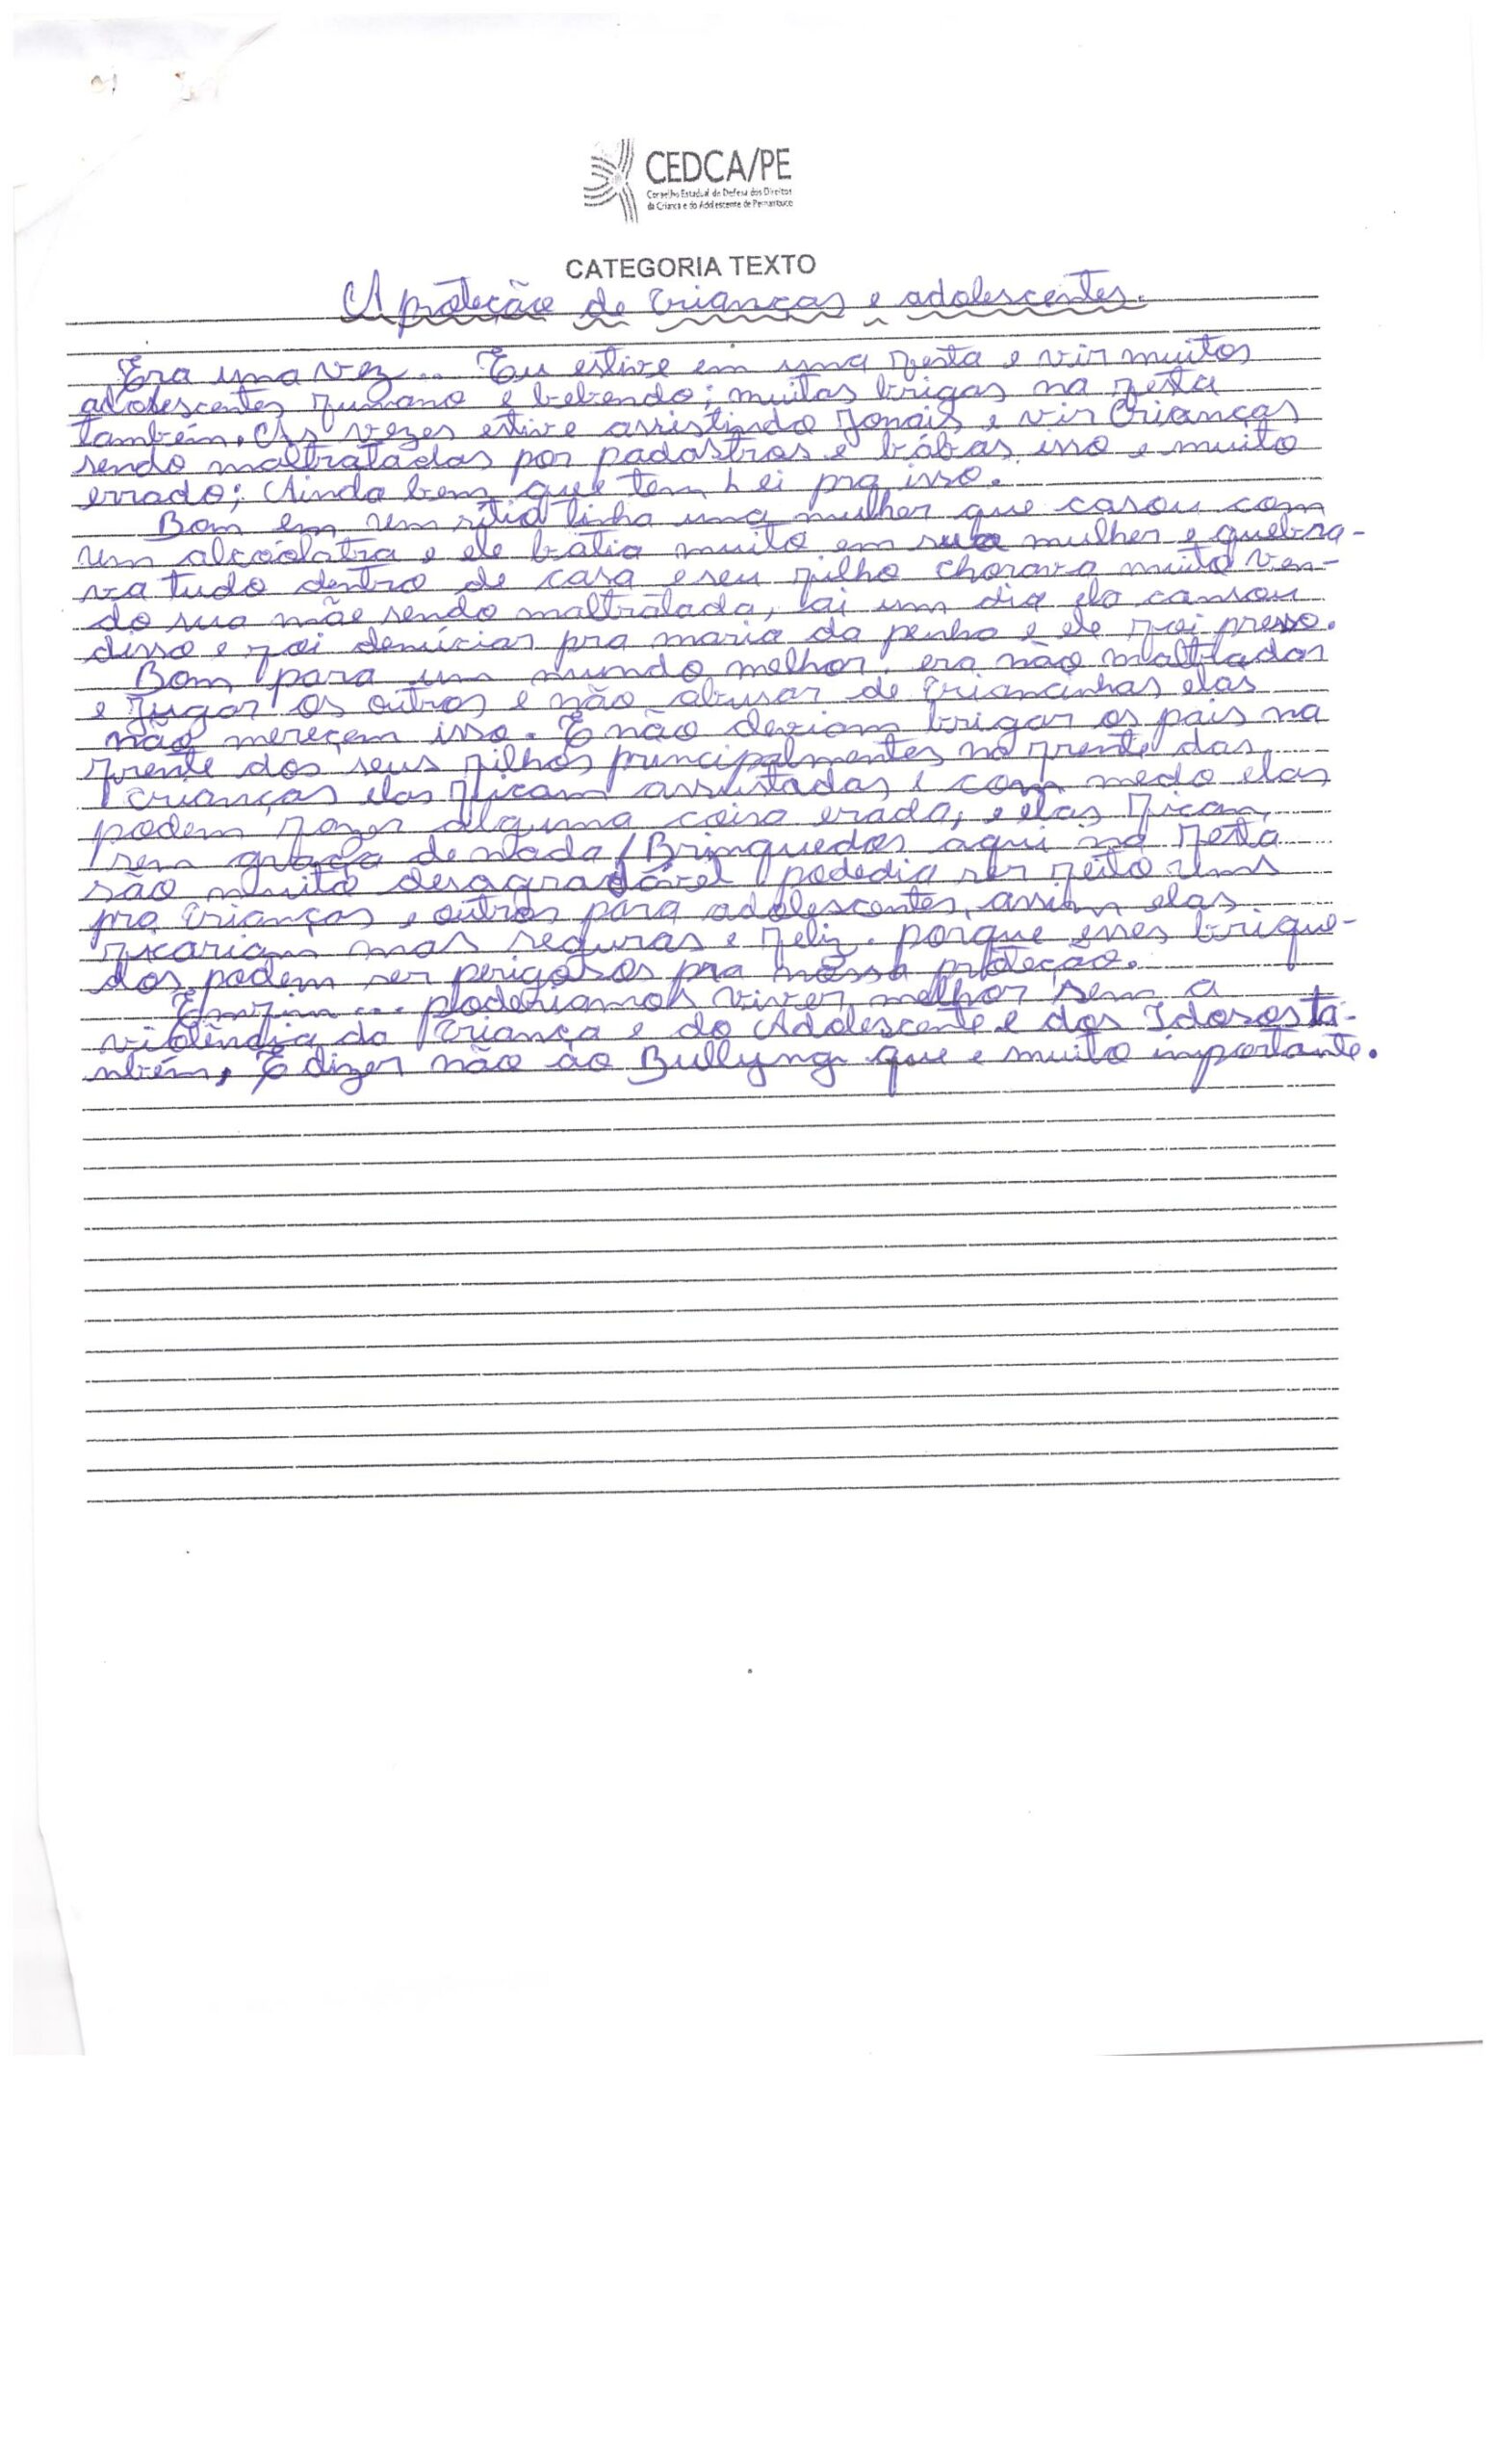 CEDCA/PE
Conselho Estadual de Defesa dos Direitos
da Criança e do Adolescente de Pernambuco
CATEGORIA TEXTO
A proteção de crianças e adolescentes.
Era uma vez... Eu estive em uma festa e vir muitos
adolescentes fumano e bebendo; muitas brigas na festa
também. As vezes estive assistindo Jonais e vir Crianças
sendo maltratadas por padastros e bábas isso e muito
errado; Ainda bem que tem Lei pra isso.
Bom em um sítio tinha uma mulher que casou com
um alcoólatra e ele batia muito em sua mulher e quebra-
va tudo dentro de casa e seu filho chorava muito ven-
do sua mãe sendo maltratada, lai um dia ela cansou
disso e foi denúciar pra maria da penha e ele foi presso.
Bom para um mundo melhor era não maltladar
e Jugar os outros e não abusar de criancinhas elas
não mereçem isso. E não deviam brigar os pais na
frente dos seus filhos principalmentes na frente das
crianças elas ficam assustadas e com medo elas
podem fazer alguma coisa erada, e elas ficam
sem graça de nada / Brinquedos aqui na festa
são muito desagradável podedia ser feito uns
pra crianças e outros para adolescentes, assim elas
ficariam mas seguras e feliz. porque esses brique-
dos podem ser perigosos pra nossa proteção.
Emfim... poderiamos viver melhor sem a
violência da Criança e do Adolescente e dos Idosos ta-
mbém, E dizer não ao Bullyng que e muito importante.